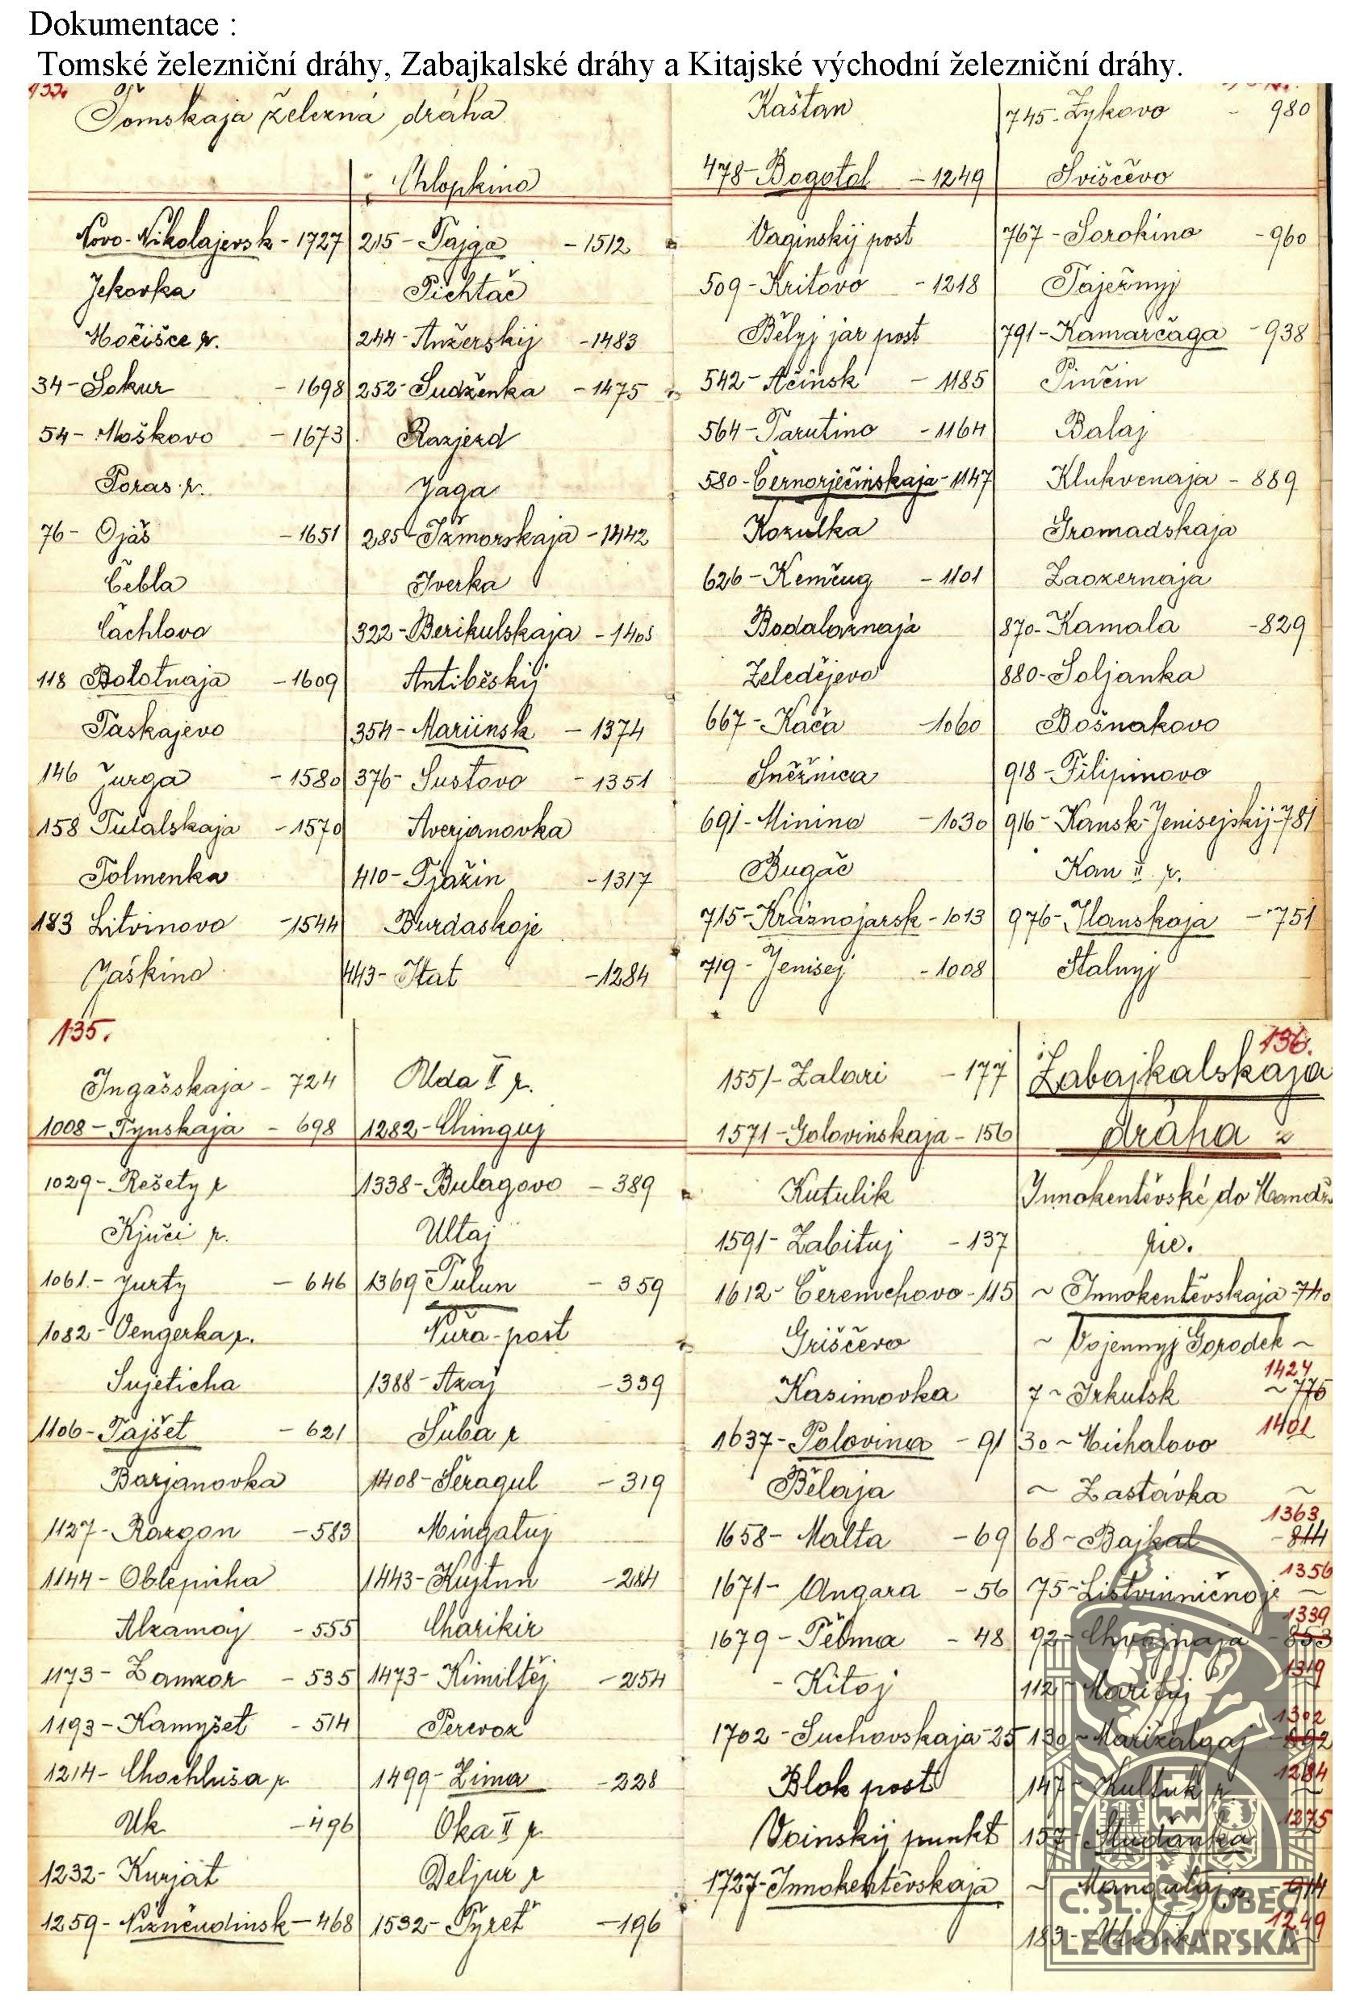 Dokumentace :
Tomské železniční dráhy, Zabajkalské dráhy a Kitajské východní železniční dráhy.
Tomskaja železná dráha
Novo-Nikolajevsk - 1727
Jekovka
Močišče r.
34 - Sokur - 1698
54 - Moškovo - 1673
Poras r.
76 - Ojáš - 1651
Čebla
Čachlovo
118 Bolotnaja - 1609
Taskajevo
146 Jurga - 1580
158 Tutalskaja - 1570
Tolmenka
183 Litvinovo - 1544
Jaškino
Chlopkino
215 - Tajga - 1512
Pichtač
244 - Anžerskij - 1483
252 - Sudženka - 1475
Razjezd
Jaga
285 - Ižmorskaja - 1442
Iverka
322 - Berikulskaja - 1405
Antiběskij
354 - Mariinsk - 1374
376 - Suslovo - 1351
Averjanovka
410 - Tjažin - 1317
Burdaskoje
443 - Itat - 1284
Kaštan
478 - Bogotol - 1249
Vaginskij post
509 - Kritovo - 1218
Bělyj jar post
542 - Ačinsk - 1185
564 - Tarutino - 1164
580 - Černorječinskaja - 1147
Kozulka
626 - Kemčug - 1101
Zeledějevo
667 - Kača - 1060
Sněžnica
691 - Minino - 1030
Bugač
715 - Kráznojarsk - 1013
719 - Jenisej - 1008
745 - Zykovo - 980
Sviščevo
767 - Sorokino - 960
Tajožnyj
791 - Kamarčaga - 938
Pinčin
Balaj
Klukvenaja - 889
Gromadskaja
Zaozernaja
870 - Kamala - 829
880 - Soljanka
Bošnakovo
918 - Filipinovo
916 - Kansk-Jenisejskij - 781
Kan II r.
976 - Ilanskaja - 751
Stalnyj
135.
Ingašskaja - 724
1008 - Tynskaja - 698
1029 - Rešety r
Kjuči r.
1061 - Jurty - 646
1082 - Vengerka r.
Sujeticha
1106 - Tajšet - 621
Barjanovka
1127 - Razgon - 583
1144 - Oblepicha
Alzamaj - 555
1173 - Zamzor - 535
1193 - Kamyšet - 514
1214 - Chochluša r
Uk - 496
1232 - Kurjat
1259 - Nižněudinsk - 468
Uda II r.
1282 - Chinguj
1338 - Bulagovo - 389
Ultaj
1369 - Tulun - 359
Nura - post
1388 - Azaj - 339
Šuba r
1408 - Šeragul - 319
Mingatuj
1443 - Kujtun - 284
Charikir
1473 - Kimiltěj - 254
Perevoz
1499 - Zima - 228
Oka II r.
Deljur r
1532 - Tyreť - 196
1551 - Zalari - 177
1571 - Golovinskaja - 156
Kutulik
1591 - Zabituj - 137
1612 - Čeremchovo - 115
Griščevo
Kasimovka
1637 - Polovina - 91
Bělaja
1658 - Malta - 69
1671 - Angara - 56
1679 - Telma - 48
- Kitoj
1702 - Suchovskaja - 25
Blok post
Voinskij punkt
1727 - Innokentěvskaja
136.
Zabajkalskaja
dráha
Innokentěvské do Mandžu
rie.
~ Innokentěvskaja - 740
~ Vojennyj Gorodek ~
1424
7 ~ Irkutsk ~ 775
1401
30 ~ Michalovo
~ Zastávka ~
1363
68 ~ Bajkal - 814
1356
75 - Listvinničnoje ~
1339
92 - Chvojnaja - 853
1319
112 - Marituj
1302
130 ~ Marizalgaj - 892
1284
147 - Kultuk r ~
1275
157 - Sludánka ~
~ Mangutaj r. - 914
1249
183 - Utulik ~
Č. SL. OBEC
LEGIONÁŘSKÁ